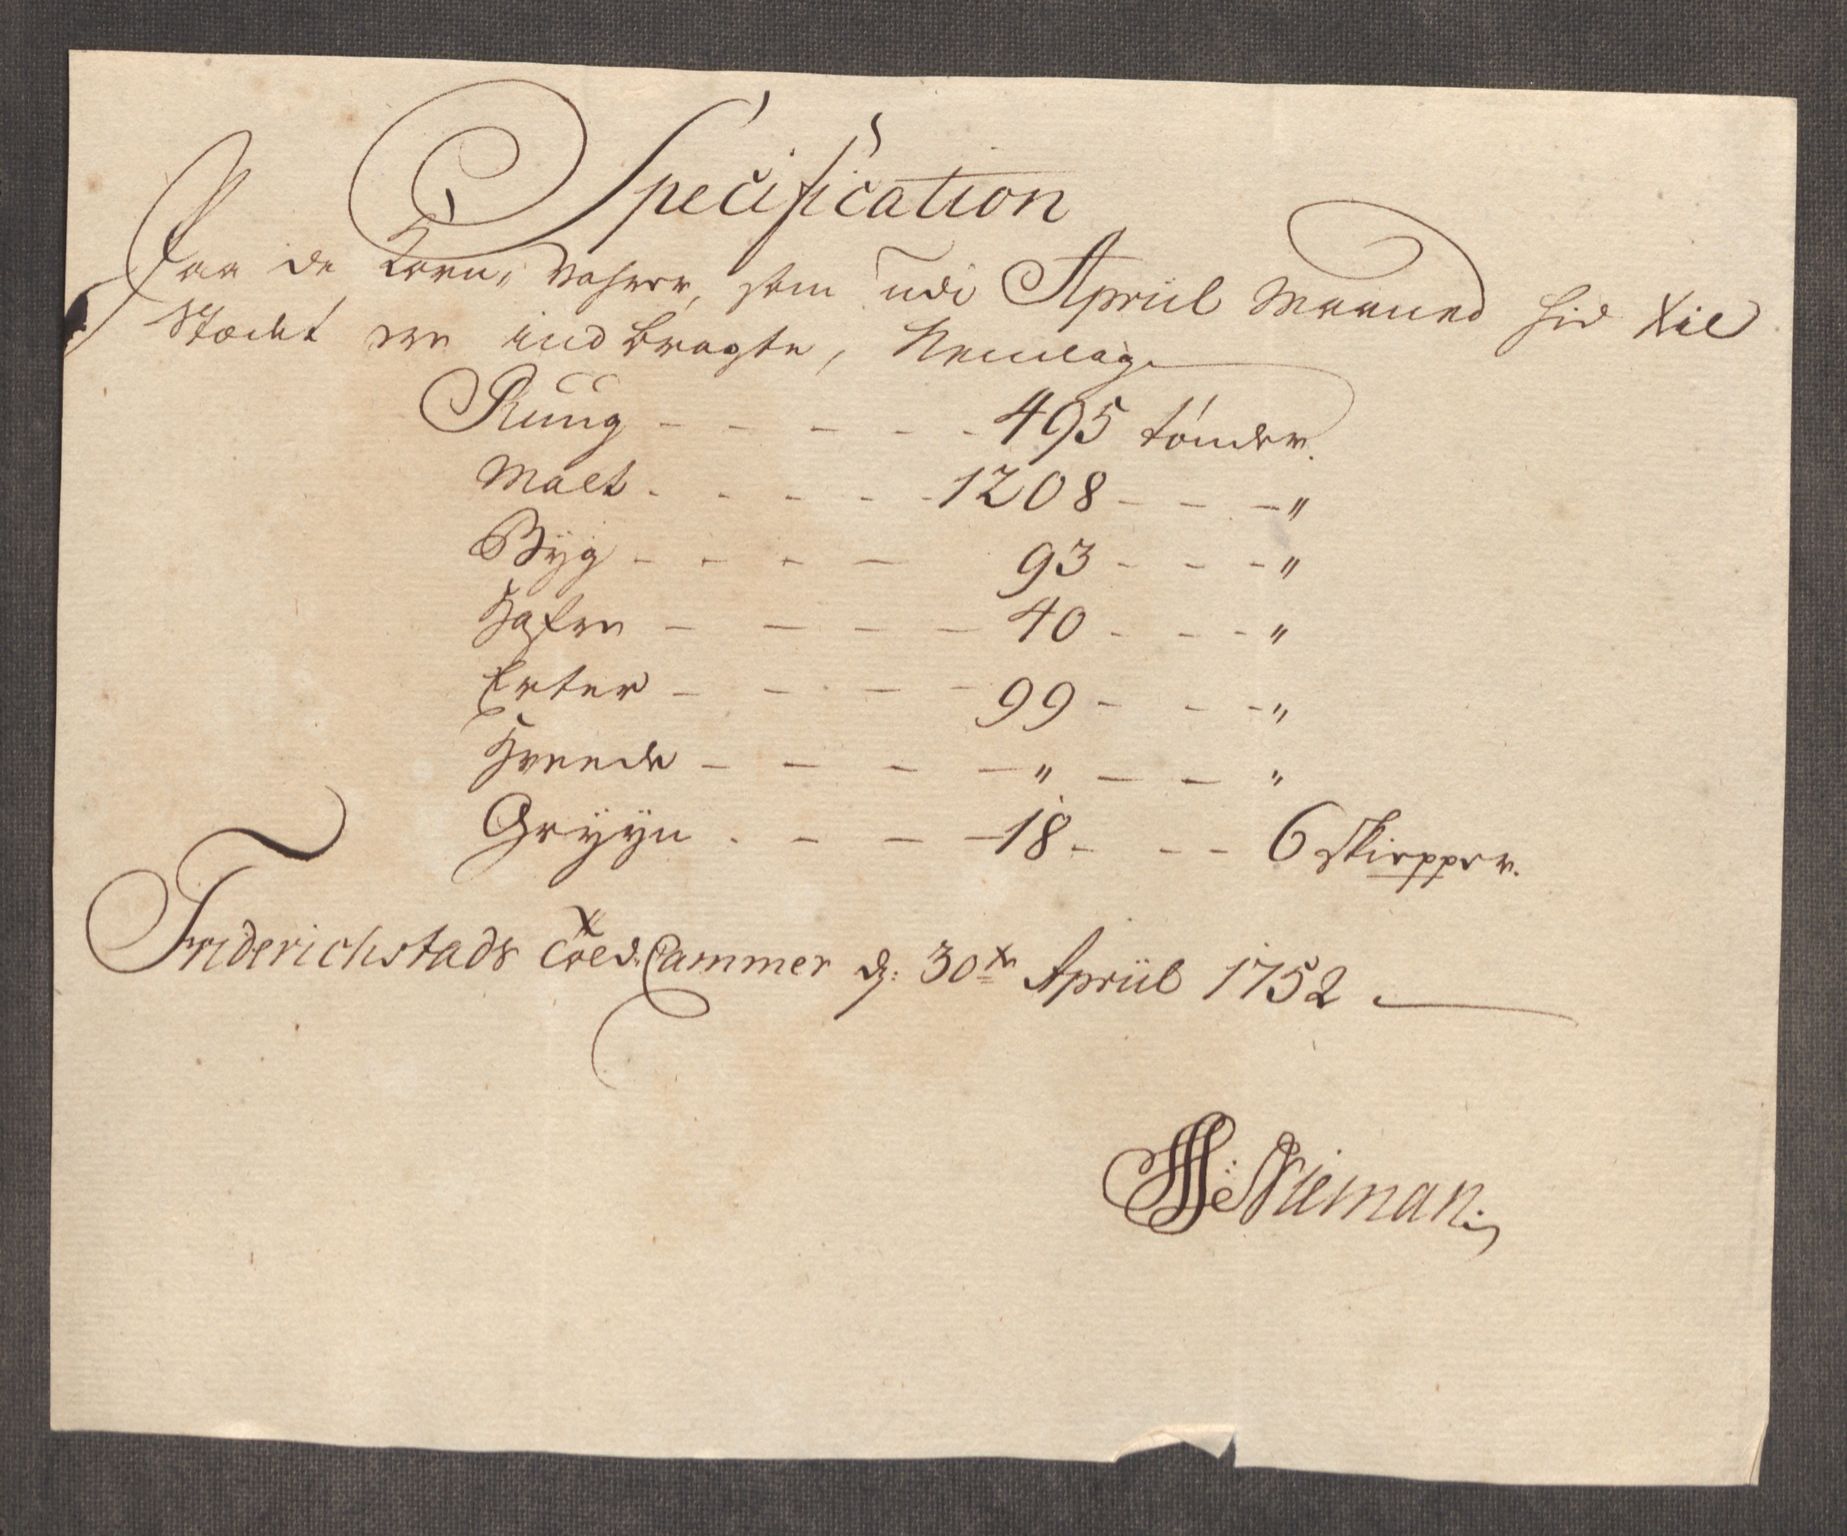 Specification
Paa de Korn, Vahrer, som udi Apriil Maaned hid til
Stædet ere indbragte, Nemlig
Ruug - - - - - 495 tønder.
Malt - - - - - 1208 - - - "
Byg - - - - 93 - - - "
Hafre - - - - 40 - - - "
Erter - - - - 99 - - - "
Hveede - - - - " - - "
Gryyn - - - - 18 - - - 6 skiepper.
Friderichstads Told Cammer d: 30te Apriil 1752
Nieman